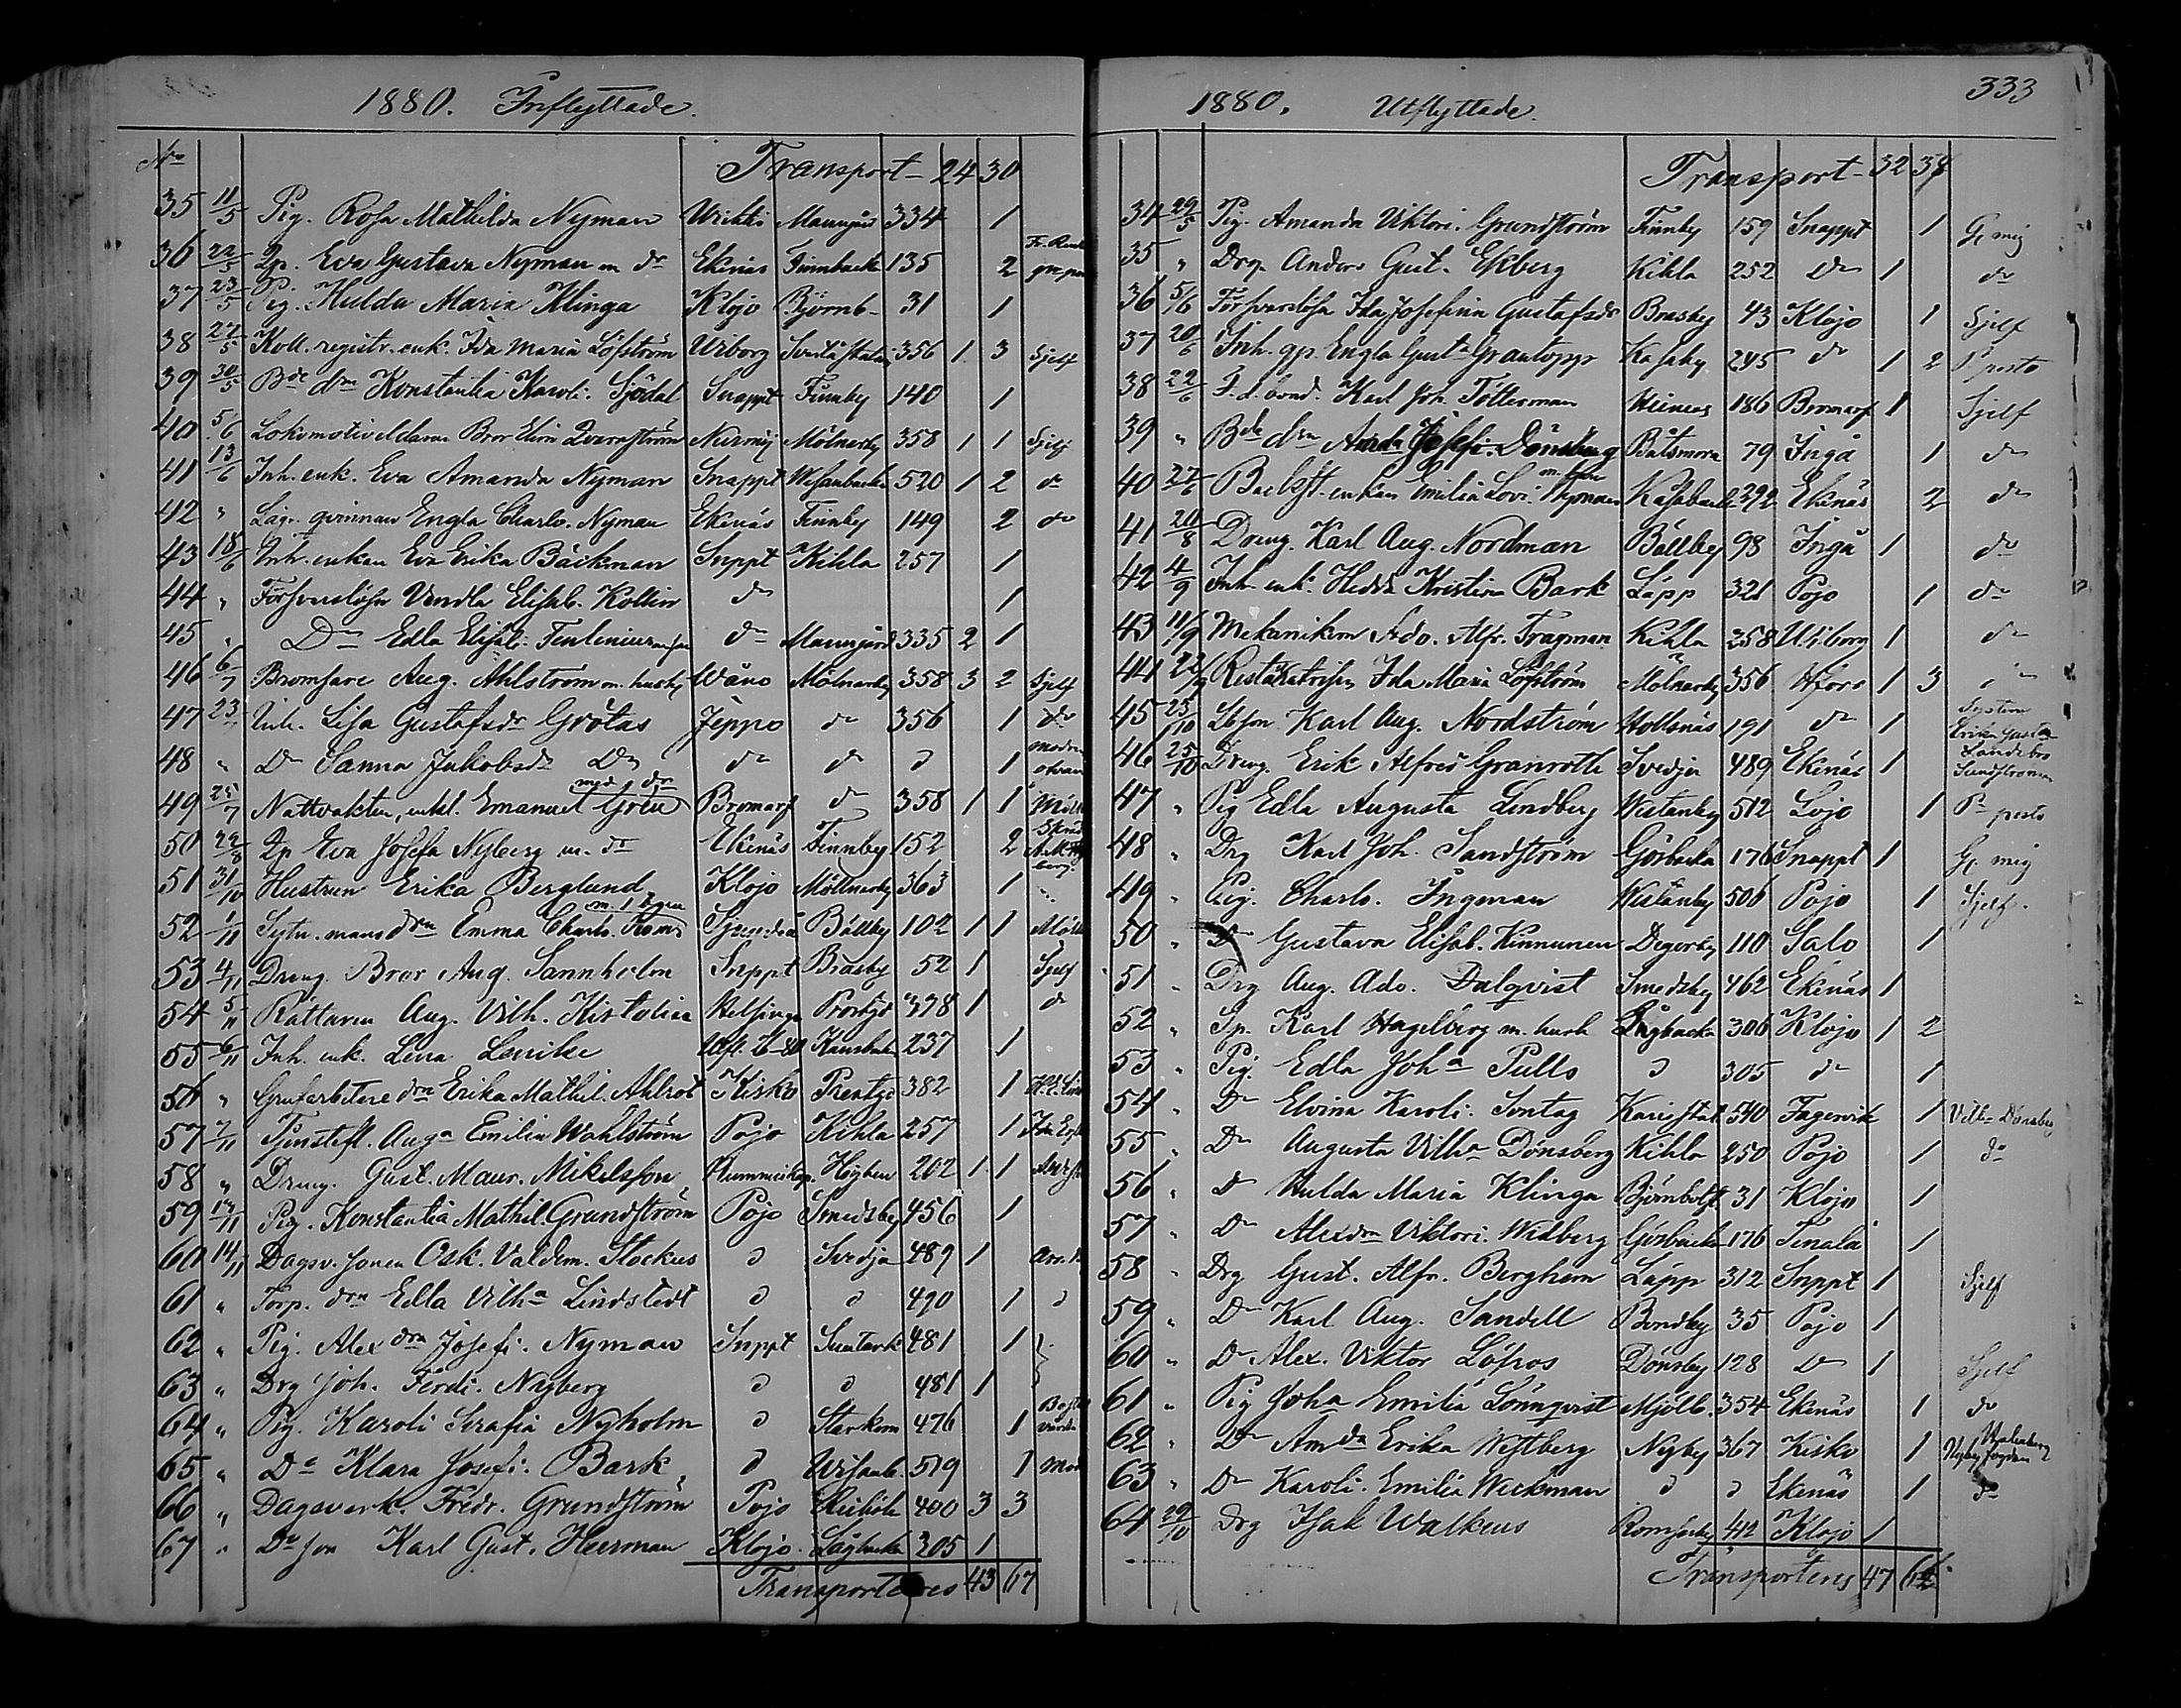 1880. Inflyttade.
No Transport 24 30
35 11/5 Pig. Rosa Mathilda Nyman Wichti 334 1
36 22/5 Qp. Eva Gustava Nyman m dr Ekenäs Finnbacka 135 2
37 23/5 Pig. Hulda Maria Klinga Klojo Björnb. 31 1
38 27/5 Koll. registr. enk. Ida Maria Löfström Wiborg Svartå station 356 1 3 Sjelf
39 30/5 Bde dra Konstantia Karoli. Sjödal Snappt Finnby 140 1
40 5/6 Lokomotiveldaren Bror Elim Qvarnström Nurmij Mölnarby 358 1 1 Sjelf
41 13/6 Inh. enk. Eva Amanda Nyman Snappt Wisanbacka 520 1 2 do
42 " Läg. qvinnan Engla Charlo. Nyman Ekenäs Finnby 149 2 do
43 18/6 Inh. enkan Eva Erika Bäckman Snppt Kihla 257 1
44 " Försvarslösa Vendla Elisab. Kollin do 1
45 " Do Edla Elisab. do 335 2 1
46 6/7 Bromsare Aug. Ahlström m. hustr Wånå Mölnarby 358 3 2 Sjelf
47 23/7 Inh. Lisa Gustafsdr Grötas Jeppo do 356 1 do
48 " Do Sanna Jakobsdr Do do do d 1 modren
49 25/7 Nattvakten, enkl. Emanuel Grén med 1 dr Bromarf do 358 1 1
50 22/8 Qp Eva Josefa Nyberg m. dr Ekenäs Finnby 152 2
51 31/10 Hustrun Erika Berglund Klojo Möllnarby 363 1
52 1/11 Sytn. mans dra Emma Charlo. m. 1 Sjundeå Bällby 102 1 1
53 4/11 Dreng. Bror Aug. Sannholm Snppt Brasby 52 1 Sjelf
54 5/11 Rättaren Aug. Vilh. Helsinge Prestgd 378 1 d
55 6/11 Inh. enk. Lena 237 1
56 " Grufarbetare dra Erika Mathil. Ahlrot Kisko Prestgd 382 1
57 7/11 Tjenstefl. Auga Emilia Wahlström Pojo Kihla 257 1
58 " Dreng. Gust. Maur. Mikelsson 202 1 1
59 13/11 Pig. Konstantia Mathil. Grundström Pojo Smedsby 456 1
60 14/11 Dagsv. sonen Osk. Valdem. Stockus d Svedja 489 1
61 " Torp. dra Edla Vilha Lindstedt d d 490 1 d
62 " Pig. Alexdra Josefi. Nyman Snppt 481 1
63 " Drg Joh. Ferdi. Nyberg d d 481 1
64 " Pig. Karoli Serafia Nyholm d Starkom 476 1
65 " Do Klara Josefi. Bark d Wisanb. 519 1
66 " Dagsverk. Fredr. Grundström Pojo 400 3 3
67 " Do son Karl Gust. Heerman Klojo Lågbacka 305 1
Transporteres 43 67
333
1880. Utflyttade.
Transport 32 38
34 29/5 Pig. Amanda Viktori. Grundström Finnby 159 Snappt 1 Gj mig
35 " Drg. Anders Gust. Ekberg Kihla 252 do 1 do
36 5/6 Försvarslösa Ida Josefina Gustafsdr Brasby 43 Klojo 1 Sjelf
37 20/6 Inh. gp. Engla Gusta Grantopp Kasaby 245 do 1 2 P posto
38 22/6 F. d. bond. Karl Joh. Tötterman 186 Bromarf 1 Sjelf
39 " Bde dra Josefi. Dönsberg Båtsmora 79 Ingå 1 do
40 27/6 Backst. enkan Emilia Lovi. Nyman 292 Ekenäs 2 do
41 20/8 Dreng. Karl Aug. Nordman Bällby 98 Ingå 1 do
42 4/9 Inh. enk. Hedda Kristina Bark Läpp 321 Pojo 1 do
43 11/9 Mekanikern Ado. Alfr. Tragman Kihla 258 Wiborg 1 do
44 22/9 Ida Maria Löfström Mölnarby 356 Hfors 1 3
45 23/10 Karl Aug. Nordström 191 do 1
46 25/10 Dreng. Erik Alfred Granroth Svedja 489 Ekenäs 1
47 " Pig Edla Augusta Lindberg Westanby 512 Lojo 1 Pr posto
48 " Drg Karl Joh. Sandström Gösbacka 176 Snappt 1 Gj mig
49 " Pig. Charlo. Ingman Westanby 506 Pojo 1 Sjelf.
50 " Do Gustava Elisab. Kinnunen Degerby 110 Salo 1
51 " Drg Aug. Ado. Dalqvist Smedsby 462 Ekenäs 1
52 " Sp. Karl Hagelberg m. husb Lågbacka 306 Klojo 1 2
53 " Pig. Edla Joha Pulls d 305 do 1
54 " Do Elvina Karoli. Sontag 540 Fagervik 1 Vilh. Dönsberg
55 " Do Augusta Vilha Dönsberg Kihla 250 Pojo 1 do
56 " D Hulda Maria Klinga Björnbolst 31 Klojo 1
57 " Do Alexdra Viktori. Widberg Gösbacka 176 Tenala 1
58 " Drg Gust. Alfr. Berghem Läpp 312 Snppt 1 Sjelf
59 " Do Karl Aug. Sandell Bondby 35 Pojo 1
60 " Do Alex. Viktor Löfros Dönsby 128 Do 1 Sjelf
61 " Pig Joha Emilia Lönnqvist Mjölb. 354 Ekenäs 1 do
62 " Do Amda Erika Westberg Nyby 367 Kisko 1
63 " Do Karoli. Emilia Weckman d d Ekenäs 1 do
64 29/10 Drg Isak Walkeus Romsarby 412 Klojo 1
Transporteres 47